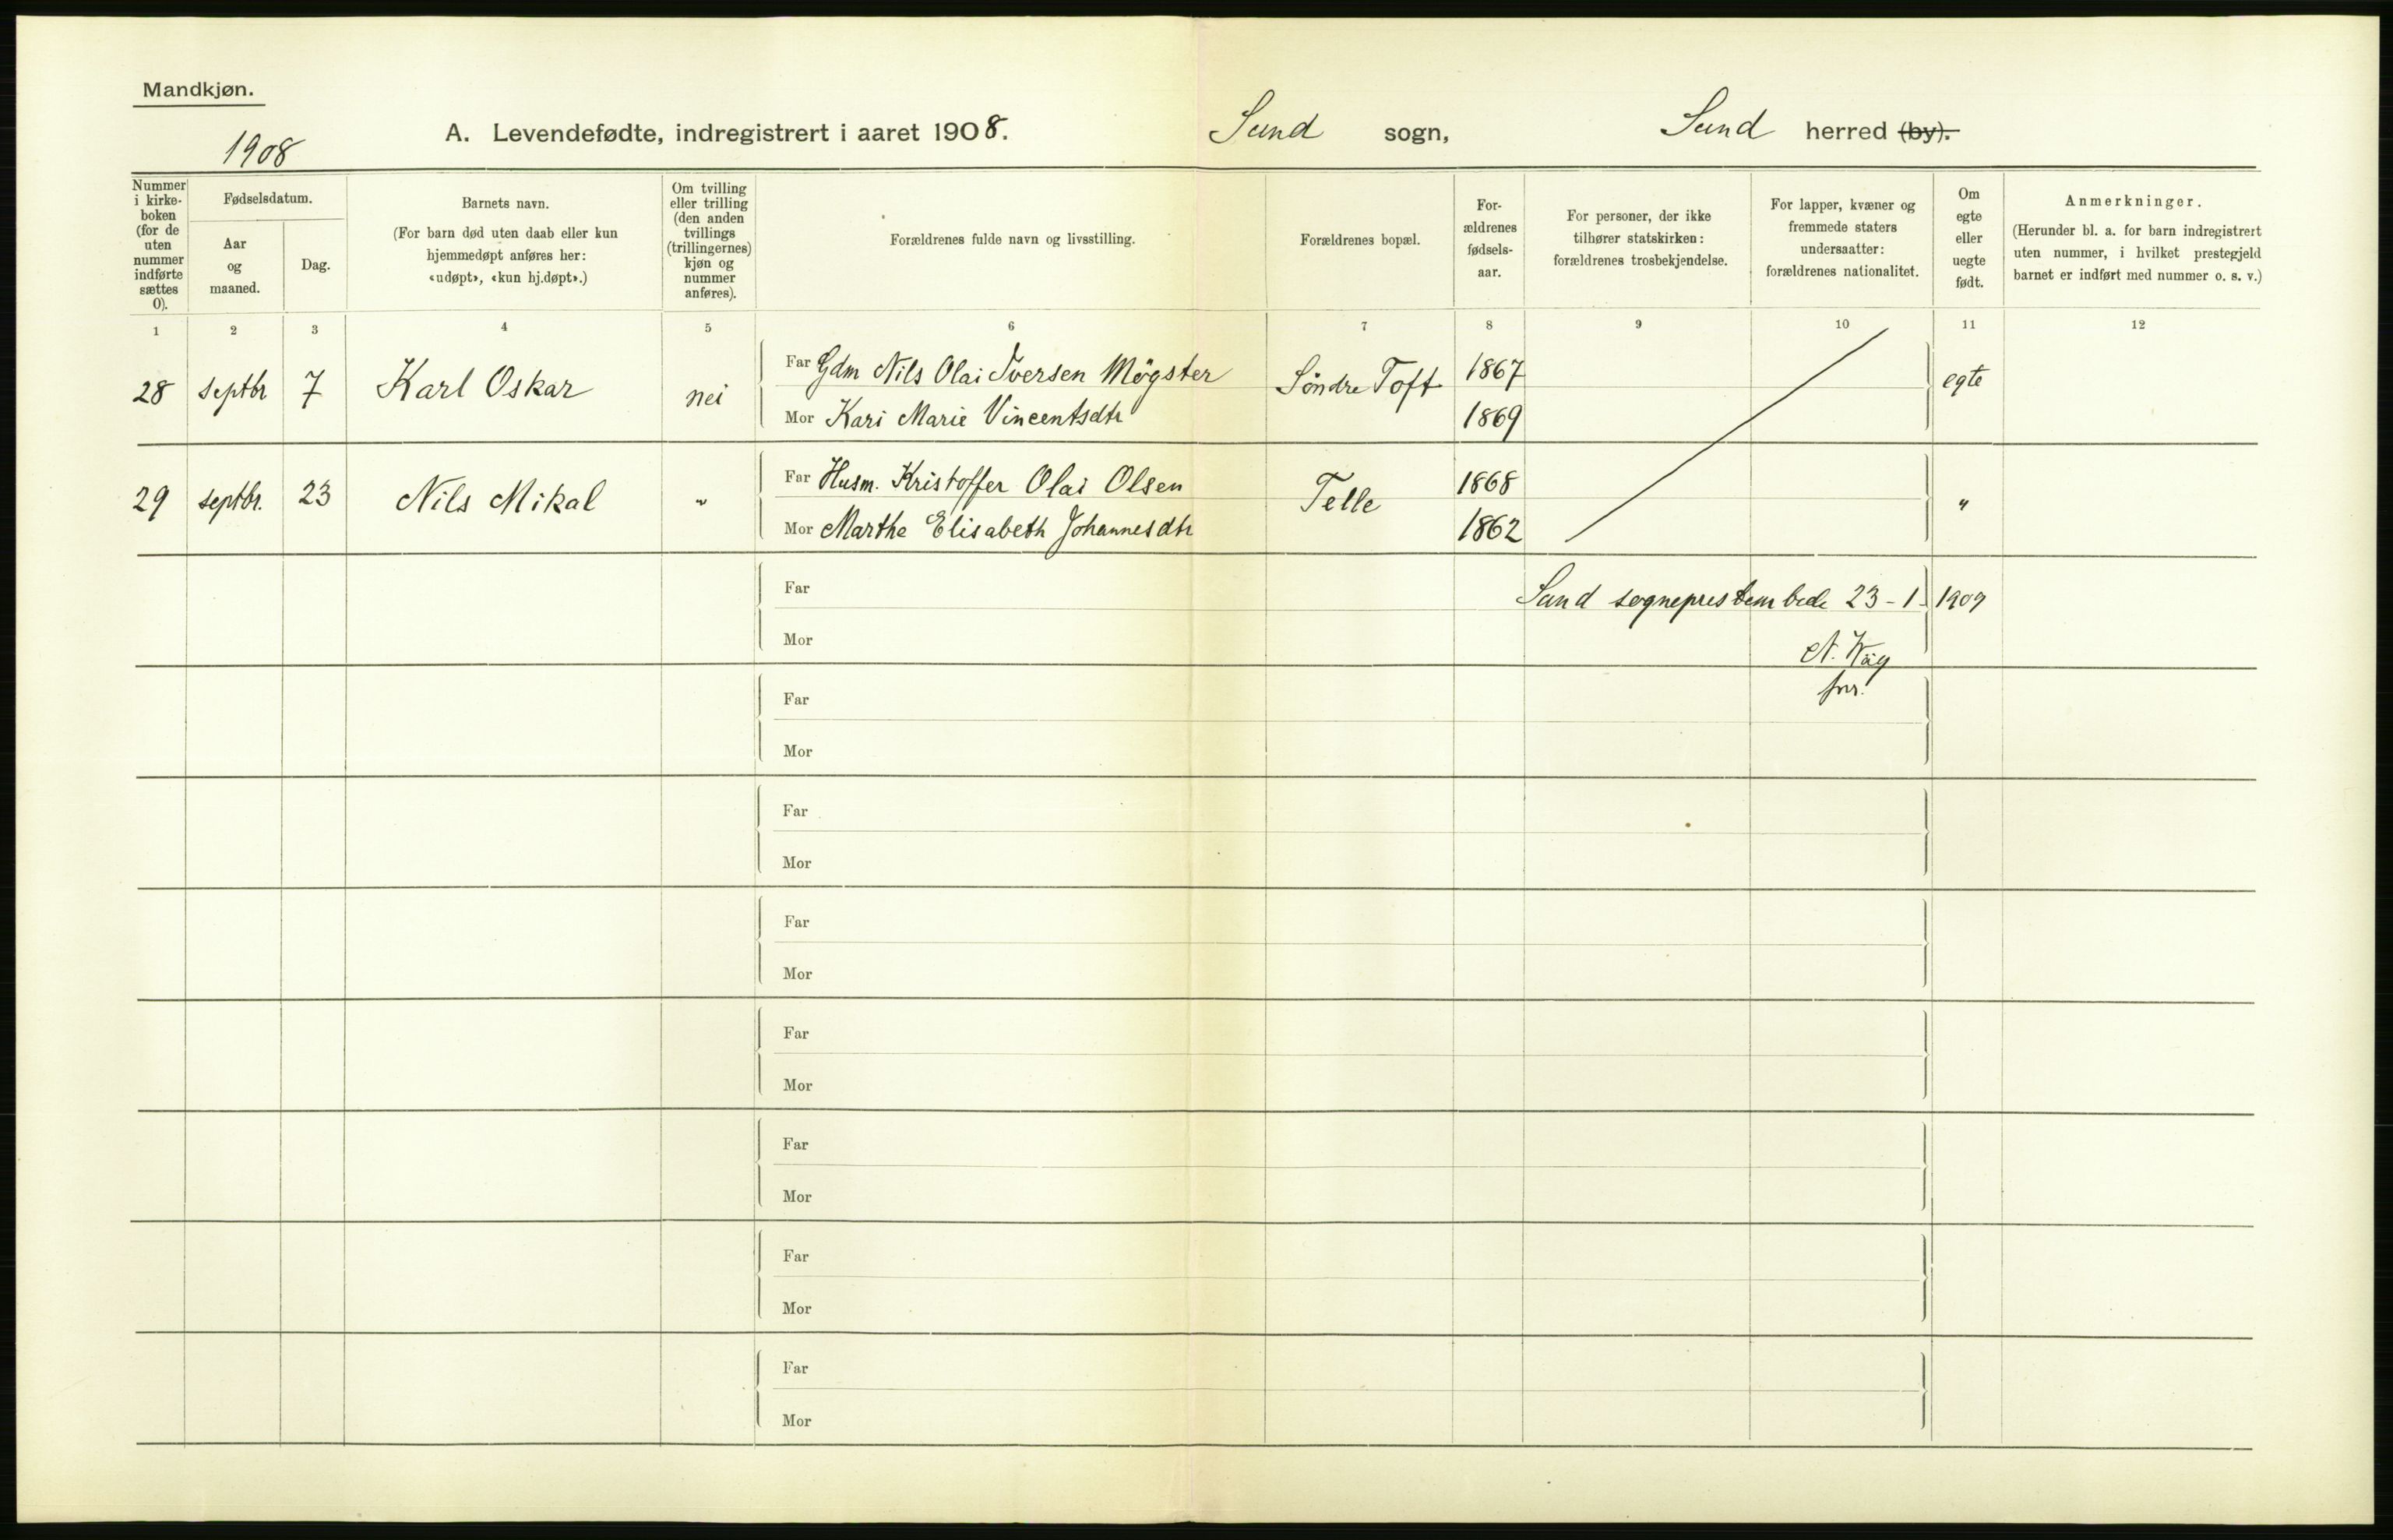 Mandkjøn.
1908
A. Levendefødte, indregistrert i aaret 1908.
Sund sogn, Sund herred (by).
Nummer i kirke-boken (for de uten nummer indførte sættes 0).
Fødselsdatum.
Aar og maaned.
Dag.
Barnets navn.
(For barn død uten daab eller kun
hjemmedøpt anføres her:
«udøpt», «kun hj.døpt».)
Om tvilling
eller trilling
(den anden
tvillings
(trillingernes)
kjøn og
nummer
anføres).
Forældrenes fulde navn og livsstilling.
Forældrenes bopæl.
For-
ældrenes
fødsels-
aar.
For personer, der ikke
tilhører statskirken:
forældrenes trosbekjendelse.
For lapper, kvæner og
fremmede staters
undersaatter:
forældrenes nationalitet.
Om
egte
eller
uegte
født.
Anmerkninger.
(Herunder bl. a. for barn indregistrert
uten nummer, i hvilket prestegjeld
barnet er indført med nummer o. s. v.)
1 2 3 4 5 6 7 8 9 10 11 12
28 Septbr 7 Karl Oskar nei Far Gdm Nils Olai Iversen Møgster Söndre Toft 1867 egte
Mor Kari Marie Vincentsdtr 1869
29 septbr. 23 Nils Mikal " Far Husm. Kristoffer Olai Olsen Telle 1868 "
Mor Marthe Elisabeth Johannesdtr 1862
Far Sund sogneprestembede 23-1- 1909
Mor
Far
Mor
Far
Mor
Far
Mor
Far
Mor
Far
Mor
Far
Mor
Far
Mor